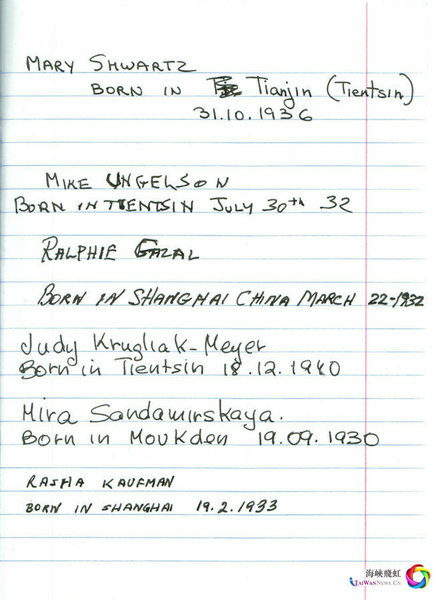 MARY SHWARTZ
BORN IN Tianjin (Tientsin)
31.10.1936
MIKE UNGELSON
BORN IN TIENTSIN JULY 30th 32
RALPHIE GAZAL
BORN IN SHANGHAI CHINA MARCH 22-1932
Judy Krugliak-Meyer
Born in Tientsin 18.12.1940
Mira Sandamirskaya.
Born in Moukden 19.09.1930
RASHA KAUFMAN
BORN IN SHANGHAI 19.2.1933
海峡飛虹
TAIWANNEWS.CN